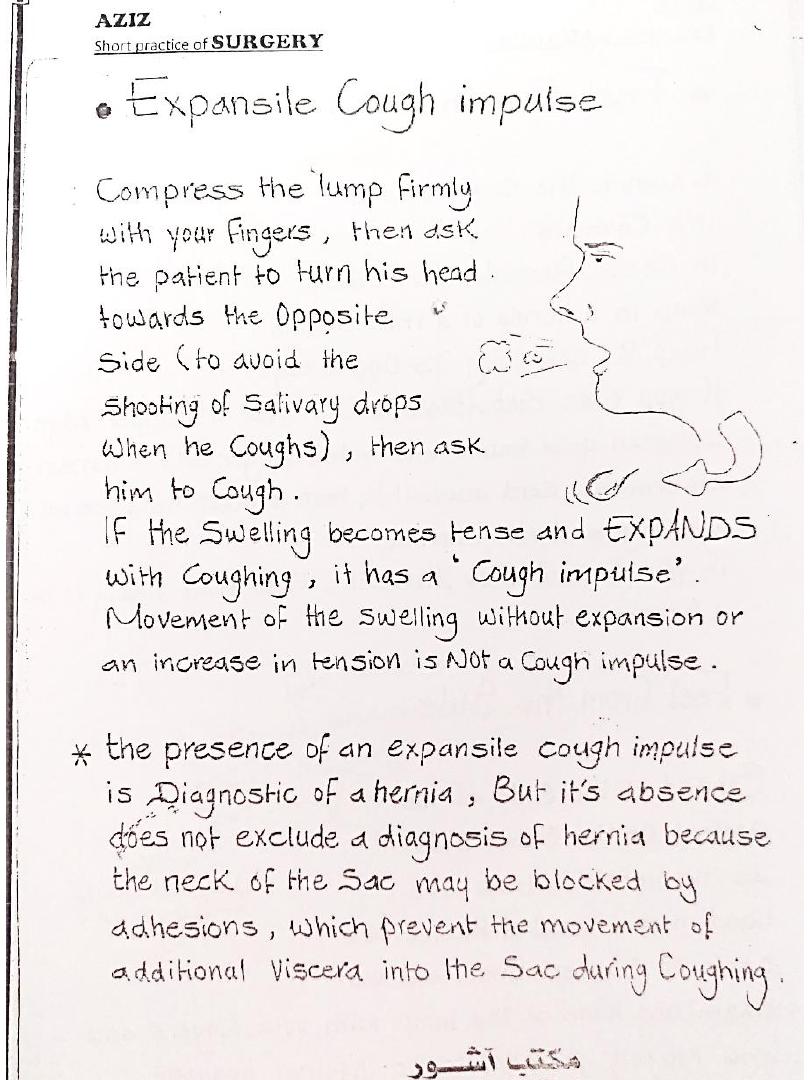 AZIZ
Short practice of SURGERY
• Expansile Cough impulse
Compress the lump firmly
with your fingers, then ask
the patient to turn his head.
towards the Opposite
Side (to avoid the
Shooting of Salivary drops
when he Coughs), then ask
him to Cough.
IF the Swelling becomes tense and EXPANDS
with Coughing, it has a 'Cough impulse'.
Movement of the swelling without expansion or
an increase in tension is NOt a Cough impulse.
* the presence of an expansile cough impulse
is Diagnostic of a hernia, But it's absence
does not exclude a diagnosis of hernia because
the neck of the Sac may be blocked by
adhesions, which prevent the movement of
additional Viscera into the Sac during Coughing.
مكتب آشور